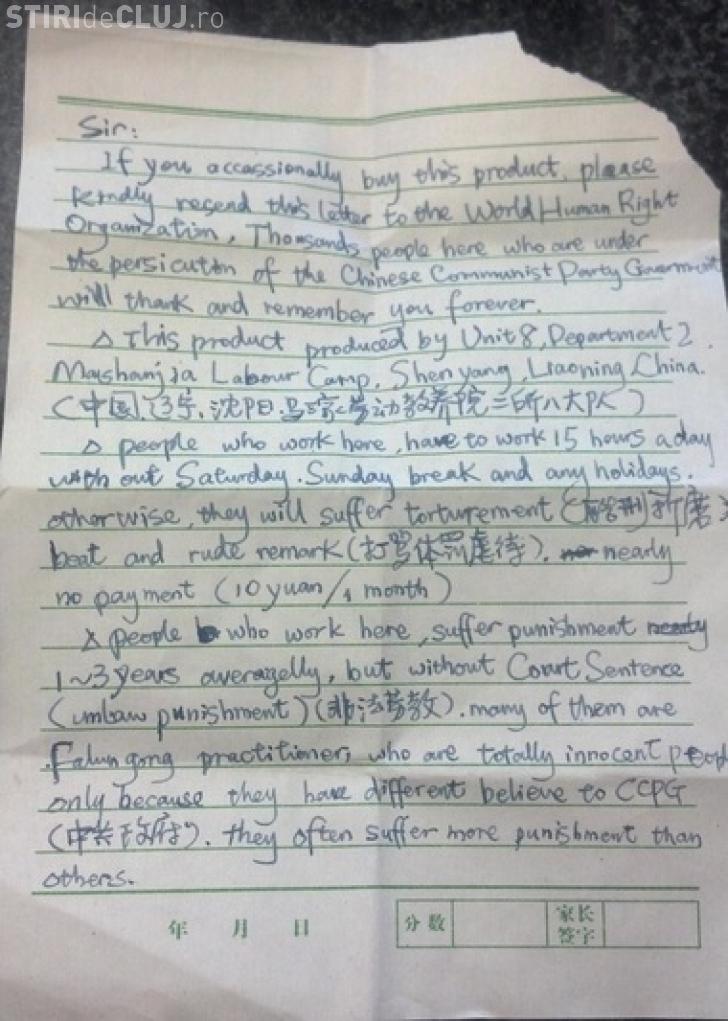 STIRIdeCLUJ.ro
Sir:
If you occassionally buy this product, please
kindly resend this letter to the World Human Right
Organization, Thousands people here who are under
the persicution of the Chinese Communist Party Goverment
will thank and remember you forever.
△ This product produced by Unit 8, Department 2.
Mashanjia Labour Camp, Shenyang, Liaoning, China.
(中国, 辽宁, 沈阳, 马三家劳动教养院二所八大队)
△ people who work here, have to work 15 hours a day
with out Saturday. Sunday break and any holidays.
otherwise, they will suffer torturement () 折磨
beat and rude remark (打骂体罚虐待). nearly
no payment (10 yuan/1 month)
△ people who work here, suffer punishment
1~3 years averagelly, but without Court Sentence
(unlaw punishment) (非法劳教). many of them are
Falun gong practitioner, who are totally innocent peop
only because they have different believe to CCPG
(中共政府). they often suffer more punishment than
others.
年 月 日
分数 家长
签字